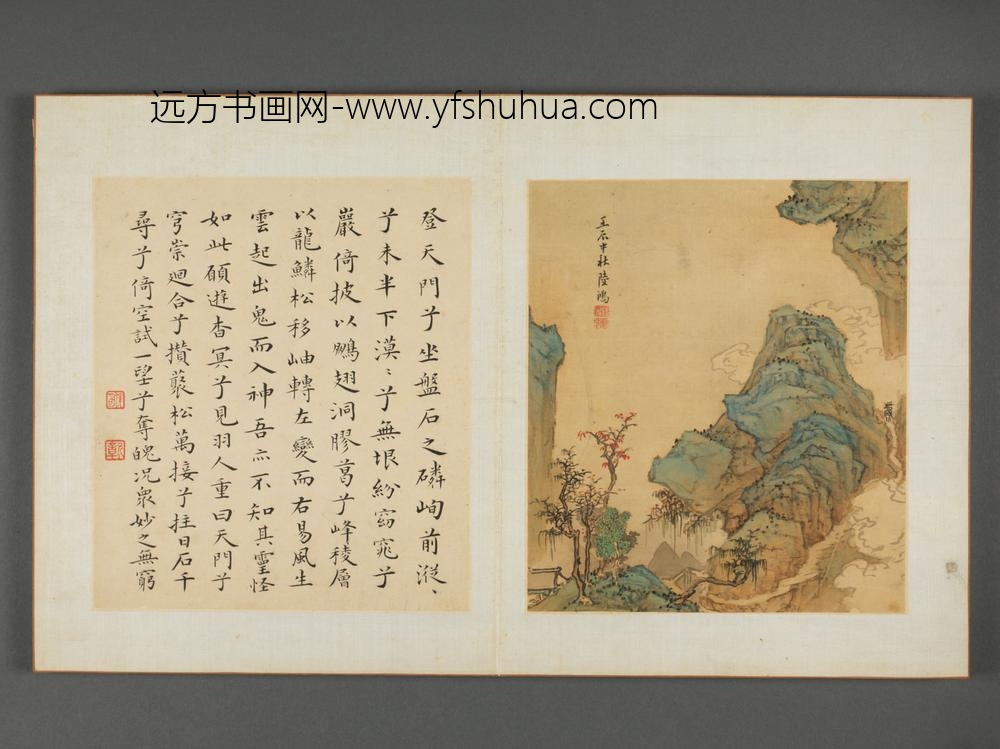 远方书画网-www.yfshuhua.com
壬辰中陸鴻
登天門兮坐盤石之磷峋前漎〻
兮未半下漠〻兮無垠紛窈窕兮
巖倚披以鵬翅洞膠葛兮峰稜層
以龍鱗松移岫轉左變而右易風生
雲起出鬼而入神吾亦不知其靈怪
如此願遊杳冥兮見羽人重曰天門兮
穹崇迴合兮攢叢松萬接兮拄日石千
尋兮倚空試一望兮奪魄況衆妙之無窮